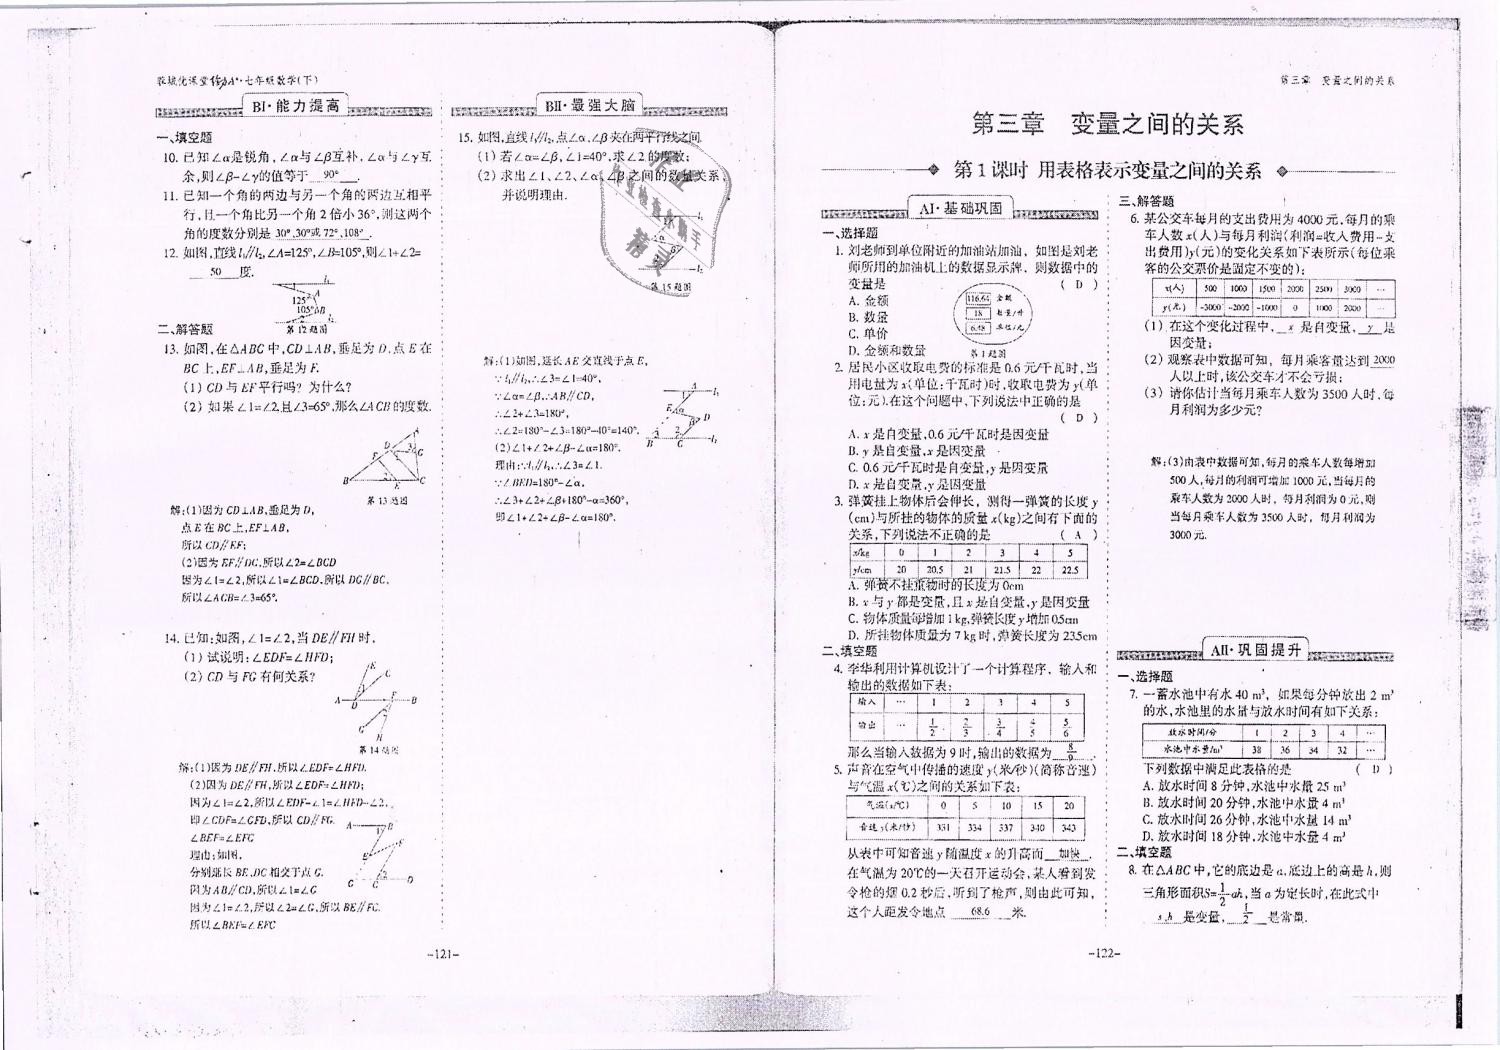 七年级数学(下)
BⅠ·能力提高
一、填空题
10. 已知∠α是锐角,∠α与∠β互补,∠α与∠γ互
余,则∠β-∠γ的值等于 90° .
11. 已知一个角的两边与另一个角的两边互相平
行,且一个角比另一个角2倍小36°,则这两个
角的度数分别是 30°,30°或72°,108° .
12. 如图,直线l₁//l₂,∠A=125°,∠B=105°,则∠1+∠2=
50 度.
第12题图
二、解答题
13. 如图,在△ABC中,CD⊥AB,垂足为D,点E在
BC上,EF⊥AB,垂足为F.
(1) CD与EF平行吗? 为什么?
(2) 如果∠1=∠2,且∠3=65°,那么∠ACB的度数.
第13题图
解:(1)因为CD⊥AB,垂足为D,
点E在BC上,EF⊥AB,
所以CD//EF;
(2)因为EF//DC,所以∠2=∠BCD
因为∠1=∠2,所以∠1=∠BCD.所以DG//BC,
所以∠ACB=∠3=65°.
14. 已知:如图,∠1=∠2,当DE//FH时,
(1) 试说明:∠EDF=∠HFD;
(2) CD与FG有何关系?
第14题图
解:(1)因为DE//FH,所以∠EDF=∠HFD.
(2)因为DE//FH,所以∠EDF=∠HFD;
因为∠1=∠2,所以∠EDF-∠1=∠HFD-∠2,
即∠CDF=∠GFD,所以CD//FG.
∠BEF=∠EFC
理由:如图,
分别延长BE,DC相交于点G.
因为AB//CD,所以∠1=∠G
因为∠1=∠2,所以∠2=∠G,所以BE//FC.
所以∠BEF=∠EFC
BⅡ·最强大脑
15. 如图,直线l₁//l₂,点∠α,∠β夹在两平行线之间.
(1) 若∠α=∠β,∠1=40°,求∠2的度数;
(2) 求出∠1、∠2、∠α、∠β之间的数量关系,
并说明理由.
第15题图
解:(1)如图,延长AE交直线于点E,
∵l₁//l₂,∴∠3=∠1=40°,
∵∠α=∠β,∴AB//CD,
∴∠2+∠3=180°,
∴∠2=180°-∠3=180°-40°=140°.
(2)∠1+∠2+∠β-∠α=180°.
理由:∵l₁//l₂,∴∠3=∠1.
∵∠BED=180°-∠α,
∴∠3+∠2+∠β+180°-α=360°,
即∠1+∠2+∠β-∠α=180°.
-121-
第三章 变量之间的关系
第三章 变量之间的关系
第1课时 用表格表示变量之间的关系
AⅠ·基础巩固
一、选择题
1. 刘老师到单位附近的加油站加油, 如图是刘老
师所用的加油机上的数据显示牌, 则数据中的
变量是 ( D )
A. 金额
B. 数量
C. 单价
D. 金额和数量
116.64 金额
18 数量/升
6.48 单价/元
第1题图
2. 居民小区收取电费的标准是0.6元/千瓦时,当
用电量为x(单位:千瓦时)时,收取电费为y(单
位:元).在这个问题中,下列说法中正确的是
( D )
A. x是自变量,0.6元/千瓦时是因变量
B. y是自变量,x是因变量
C. 0.6元/千瓦时是自变量,y是因变量
D. x是自变量,y是因变量
3. 弹簧挂上物体后会伸长, 测得一弹簧的长度y
(cm)与所挂的物体的质量x(kg)之间有下面的
关系,下列说法不正确的是 ( A )
x/kg 0 1 2 3 4 5
y/cm 20 20.5 21 21.5 22 22.5
A. 弹簧不挂重物时的长度为0cm
B. x与y都是变量,且x是自变量,y是因变量
C. 物体质量每增加1kg,弹簧长度y增加0.5cm
D. 所挂物体质量为7kg时,弹簧长度为23.5cm
二、填空题
4. 李华利用计算机设计了一个计算程序, 输入和
输出的数据如下表:
输入 … 1 2 3 4 5
输出 … 1/2 2/3 3/4 4/5 5/6
那么当输入数据为9时,输出的数据为 8/9 .
5. 声音在空气中传播的速度y(米/秒)(简称音速)
与气温x(℃)之间的关系如下表:
气温x(℃) 0 5 10 15 20
音速y(米/秒) 331 334 337 340 343
从表中可知音速y随温度x的升高而 加快 .
在气温为20℃的一天召开运动会,某人看到发
令枪的烟0.2秒后,听到了枪声,则由此可知,
这个人距发令地点 68.6 米.
三、解答题
6. 某公交车每月的支出费用为4000元,每月的乘
车人数x(人)与每月利润(利润=收入费用-支
出费用)y(元)的变化关系如下表所示(每位乘
客的公交票价是固定不变的):
x(人) 500 1000 1500 2000 2500 3000 …
y(元) -3000 -2000 -1000 0 1000 2000 …
(1) 在这个变化过程中, x 是自变量, y 是
因变量;
(2) 观察表中数据可知, 每月乘客量达到 2000
人以上时,该公交车才不会亏损;
(3) 请你估计当每月乘车人数为3500人时,每
月利润为多少元?
解:(3)由表中数据可知,每月的乘车人数每增加
500人,每月的利润可增加1000元,当每月的
乘车人数为2000人时, 每月利润为0元,则
当每月乘车人数为3500人时, 每月利润为
3000元.
AⅡ·巩固提升
一、选择题
7. 一蓄水池中有水40m³, 如果每分钟放出2m³
的水,水池里的水量与放水时间有如下关系:
放水时间/分 1 2 3 4 …
水池中水量/m³ 38 36 34 32 …
下列数据中满足此表格的是 ( D )
A. 放水时间8分钟,水池中水量25m³
B. 放水时间20分钟,水池中水量4m³
C. 放水时间26分钟,水池中水量14m³
D. 放水时间18分钟,水池中水量4m³
二、填空题
8. 在△ABC中,它的底边是a,底边上的高是h,则
三角形面积S=1/2ah,当a为定长时,在此式中
s,h 是变量, 1/2 是常量.
-122-